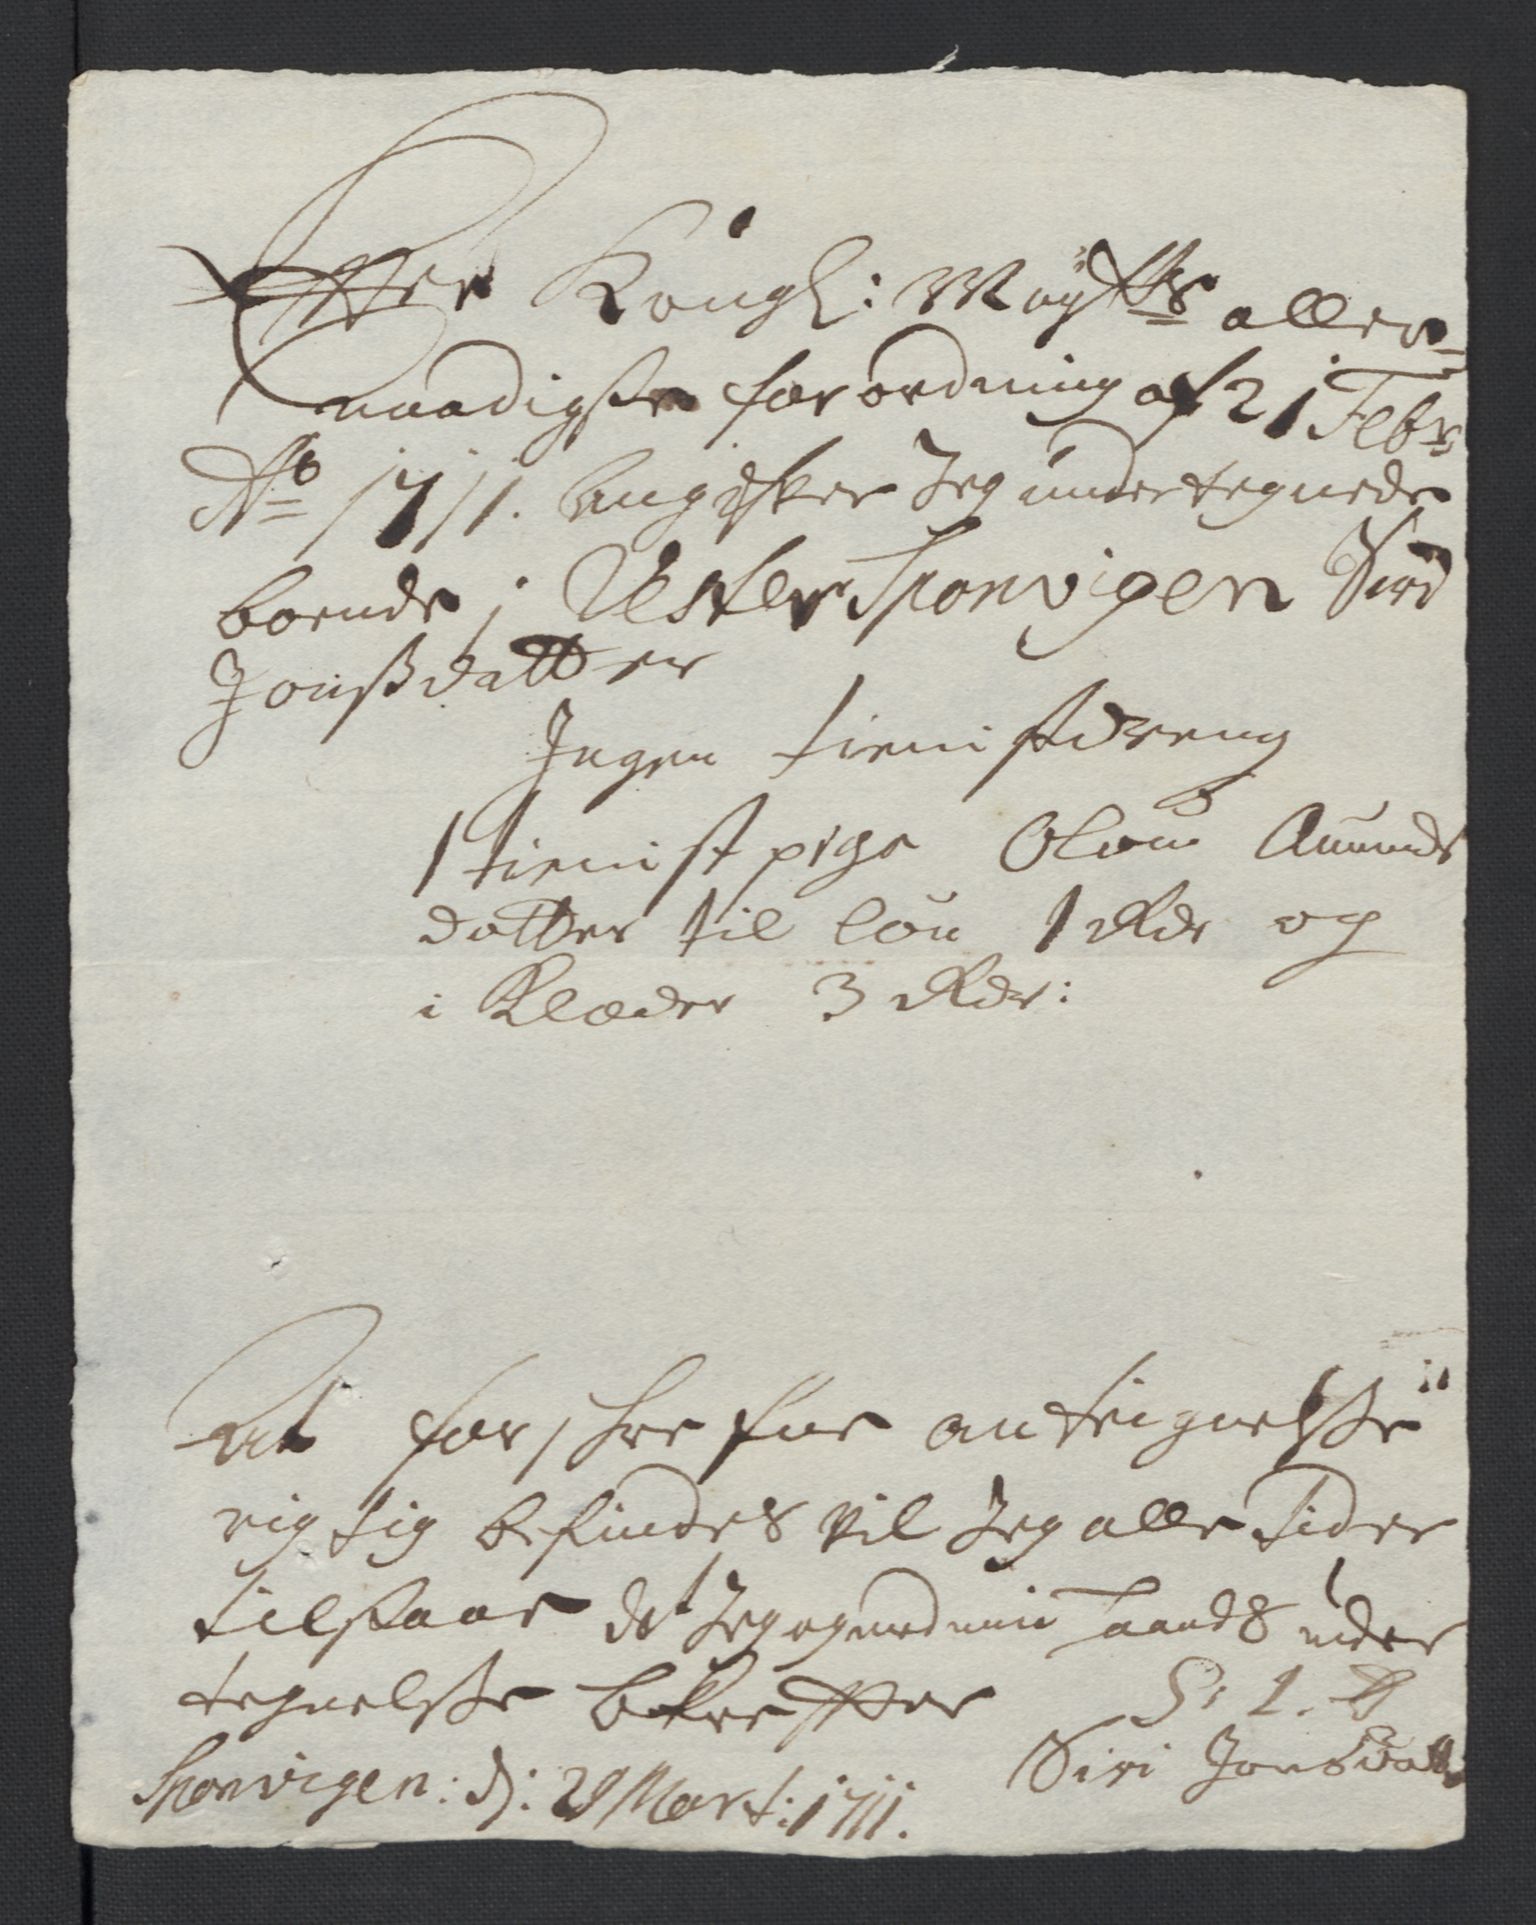 Effter Kongl: Maytts aller=
naadigste forordning af 21 Febr
Ao 1711. Angifver Jeg undertegnede
boende i Vester Sponvigen Siri
Jonsßdatter
Ingen tienistdreng
1 tienist pige Oloug Amunds
datter til løn 1 Rdr og
i Klæder 3 Rdr:
At forskrefne anteignelsse
rigtig befindes vil Jeg alle Tider
tilstaae det Jeg og med min haands under
tegnelsse bekreffter
S: I. D
Siri Jonsdatt
Sponvigen: d: 28 Mart: 1711.